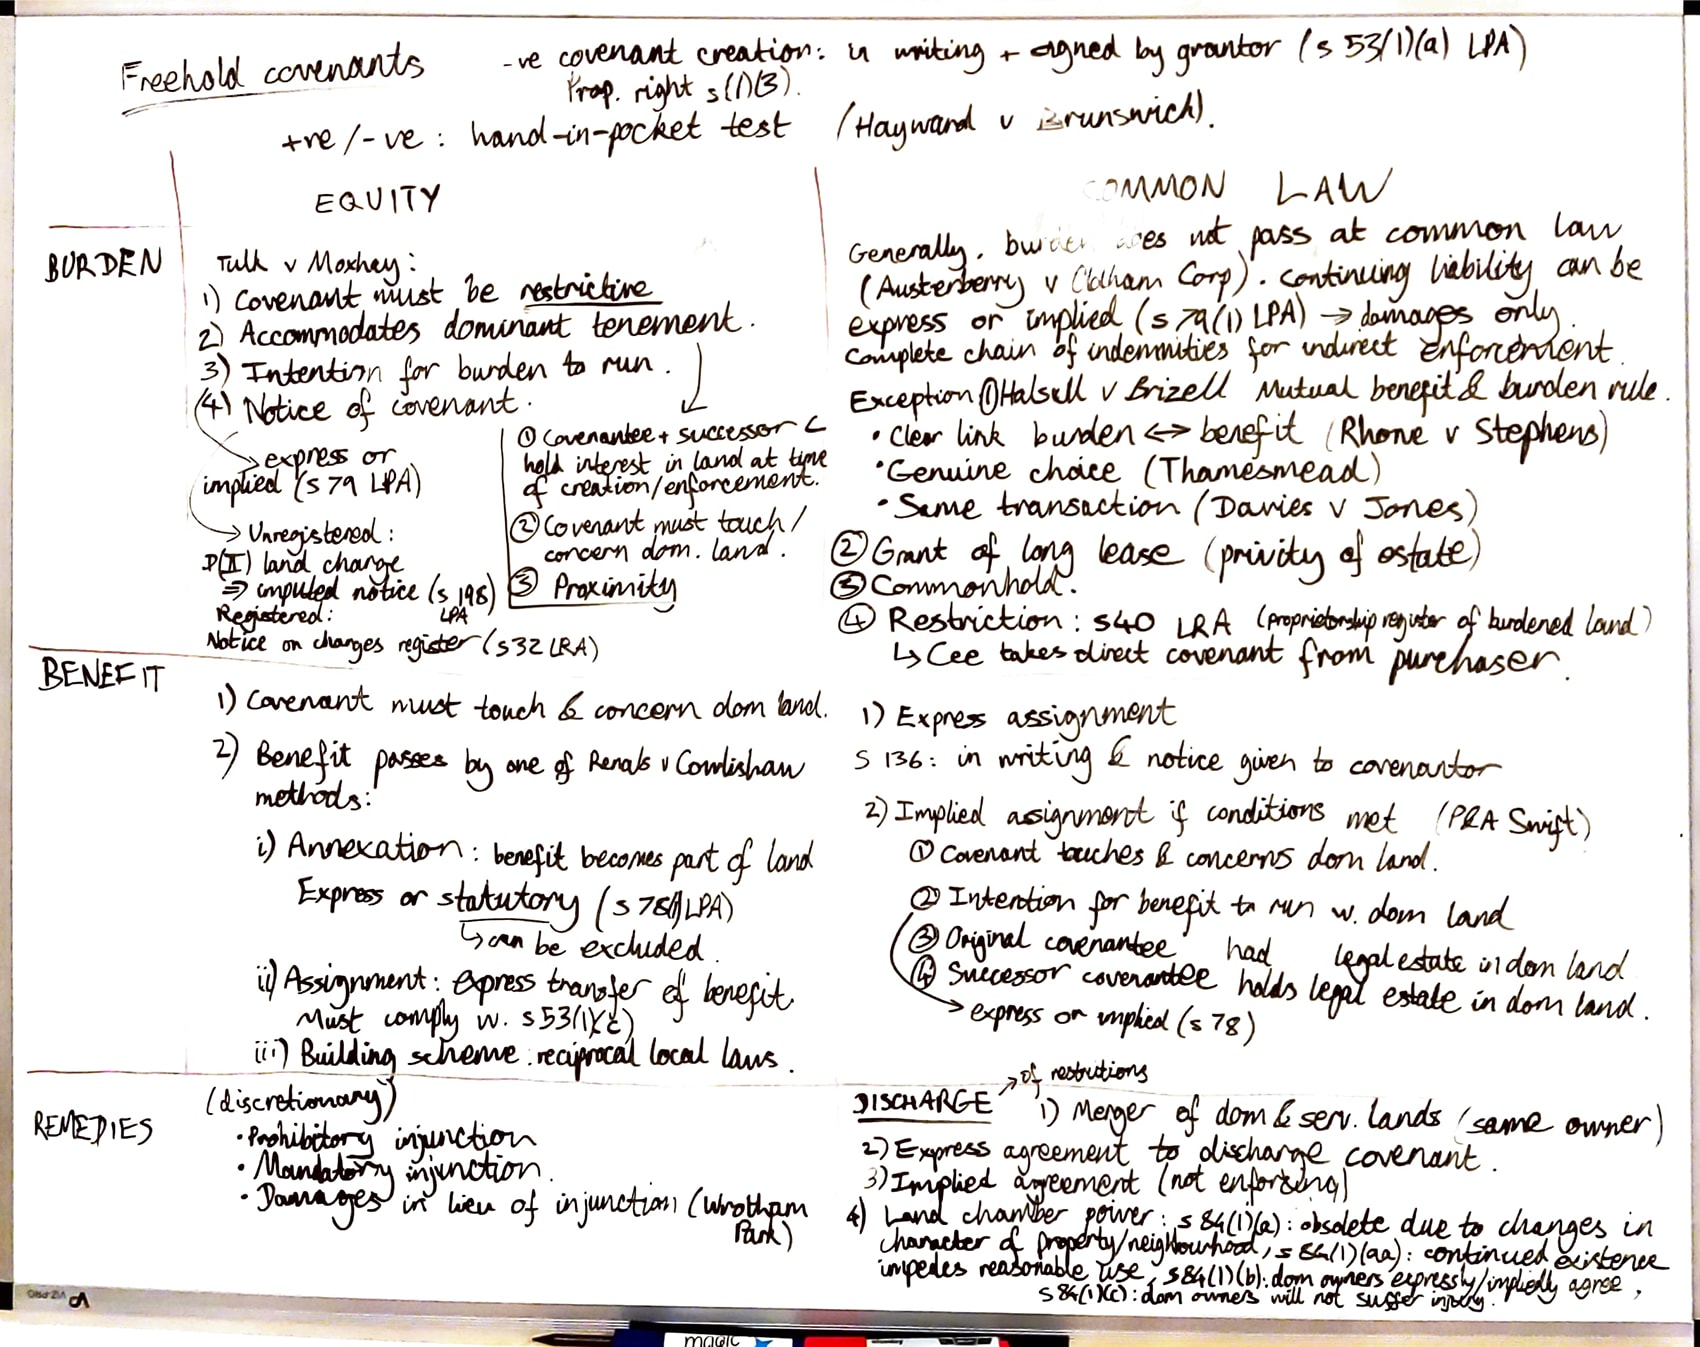 Freehold covenants
-ve covenant creation: in writing + signed by grantor (s 53(1)(a) LPA)
Prop. right s(1)(3).
+ve/-ve: hand-in-pocket test (Hayward v Brunswich).
EQUITY
COMMON LAW
BURDEN
Tulk v Moxhay:
1) Covenant must be restrictive
2) Accommodates dominant tenement.
3) Intention for burden to run.
(4) Notice of covenant.
→ express or
implied (s 79 LPA)
→ Unregistered:
D(II) land charge
⇒ imputed notice (s 198)
LPA
Registered:
Notice on charges register (s32 LRA)
① Covenantee + successor
hold interest in land at time
of creation/enforcement.
② Covenant must touch/
concern dom. land.
③ Proximity
Generally, burden does not pass at common law
(Austerberry v Oldham Corp). Continuing liability can be
express or implied (s 79(1) LPA) → damages only.
Complete chain of indemnities for indirect enforcement.
Exception ① Halsall v Brizell Mutual benefit & burden rule.
• Clear link burden ↔ benefit (Rhone v Stephens)
• Genuine choice (Thamesmead)
• Same transaction (Davies v Jones)
② Grant of long lease (privity of estate)
③ Commonhold.
④ Restriction: s40 LRA (proprietorship register of burdened land)
↳ Cee takes direct covenant from purchaser.
BENEFIT
1) Covenant must touch & concern dom land.
2) Benefit passes by one of Renals v Cowlishaw
methods:
i) Annexation: benefit becomes part of land
Express or statutory (s 78(1) LPA)
↳ can be excluded.
ii) Assignment: express transfer of benefit.
Must comply w. s 53(1)(c)
iii) Building scheme: reciprocal local laws.
1) Express assignment
s 136: in writing & notice given to covenantor
2) Implied assignment if conditions met (P&A Swift)
① Covenant touches & concerns dom land.
② Intention for benefit to run w. dom land
③ Original covenantee had legal estate in dom land
④ Successor covenantee holds legal estate in dom land.
→ express or implied (s 78)
REMEDIES
(discretionary)
• Prohibitory injunction
• Mandatory injunction.
• Damages in lieu of injunction (Wrotham
Park)
DISCHARGE → of restrictions
1) Merger of dom & serv. lands (same owner)
2) Express agreement to discharge covenant.
3) Implied agreement (not enforcing)
4) Land chamber power: s 84(1)(a): obsolete due to changes in
character of property/neighbourhood, s 84(1)(aa): continued existence
impedes reasonable use, s84(1)(b): dom owners expressly/impliedly agree,
s 84(1)(c): dom owners will not suffer injury.
magic